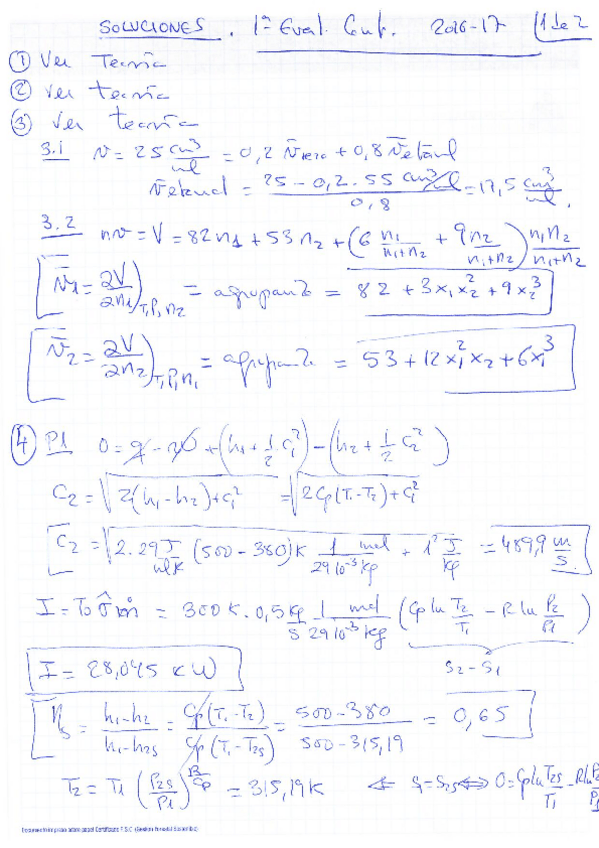 SOLUCIONES . 1ª Eval. Cont. 2016-17 1 de 2
① Ver Teoría
② Ver teoría
③ Ver teoría
3.1 v = 25 cm³/ml = 0,2 v̄ + 0,8 v̄etanol
v̄etanol = (25 - 0,2 · 55 cm³/ml) / 0,8 = 17,5 cm³/ml.
3.2 nv = V = 82n₁ + 53n₂ + (6 n₁/(n₁+n₂) + 9 n₂/(n₁+n₂)) n₁n₂/(n₁+n₂)
v̄₁ = ∂V/∂n₁)T,P,n₂ = agrupando = 82 + 3x₁x₂² + 9x₂³
v̄₂ = ∂V/∂n₂)T,P,n₁ = agrupando = 53 + 12x₁²x₂ + 6x₁³
④ P1 0 = q - w + (h₁ + 1/2 c₁²) - (h₂ + 1/2 c₂²)
C₂ = √(2(h₁-h₂)+c₁²) = √(2Cp(T₁-T₂)+c₁²)
C₂ = √(2·29 J/mlK (500-380)K 1/(29 10⁻³) mol/kg + 1² J/kg) = 489,9 m/s
I = T₀ σ̂ ṁ = 300K · 0,5 kg/s 1/(29 10⁻³) mol/kg (Cp ln T₂/T₁ - R ln P₂/P₁)
S₂-S₁
I = 28,045 KW
ηs = (h₁-h₂)/(h₁-h₂s) = Cp(T₁-T₂)/Cp(T₁-T₂s) = (500-380)/(500-315,19) = 0,65
T₂ = T₁ (P₂s/P₁)^(R/Cp) = 315,19K ⇐ S₁=S₂s ⇔ 0=Cp ln T₂s/T₁ - R ln P₂/P₁